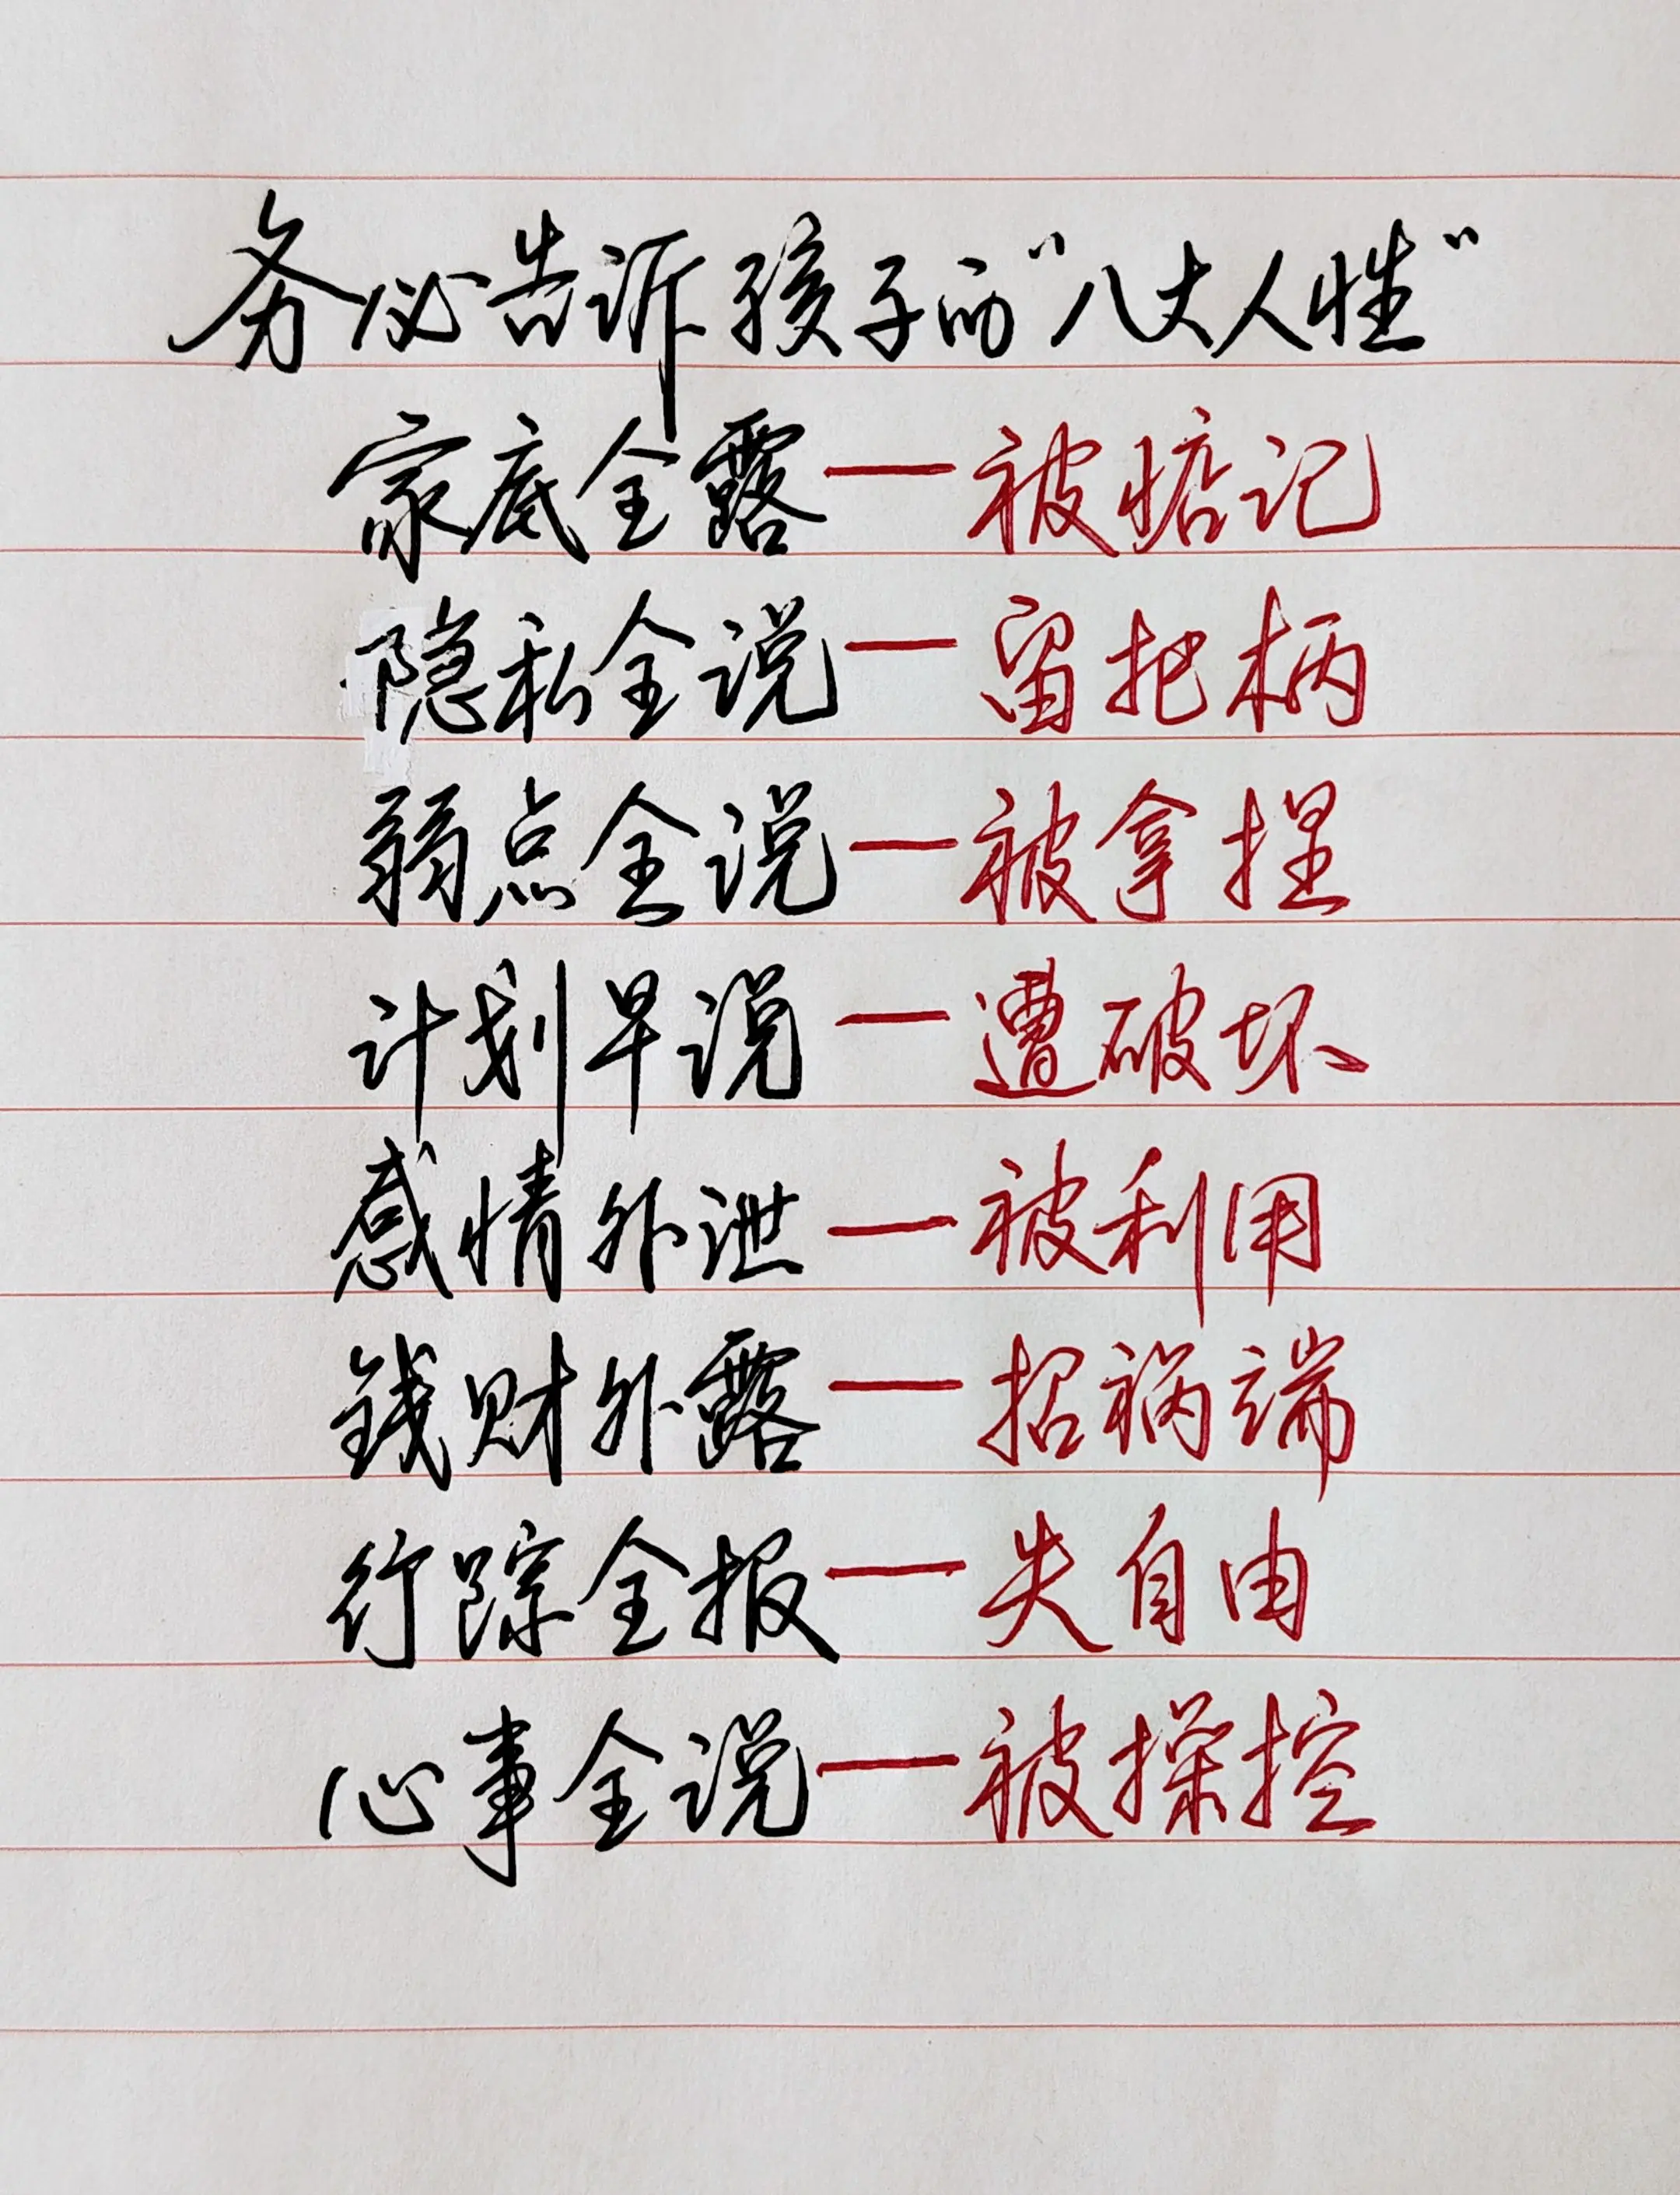 务必告诉孩子的“八大人性”
家底全露—被惦记
隐私全说—留把柄
弱点全说—被拿捏
计划早说—遭破坏
感情外泄—被利用
钱财外露—招祸端
行踪全报—失自由
心事全说—被操控